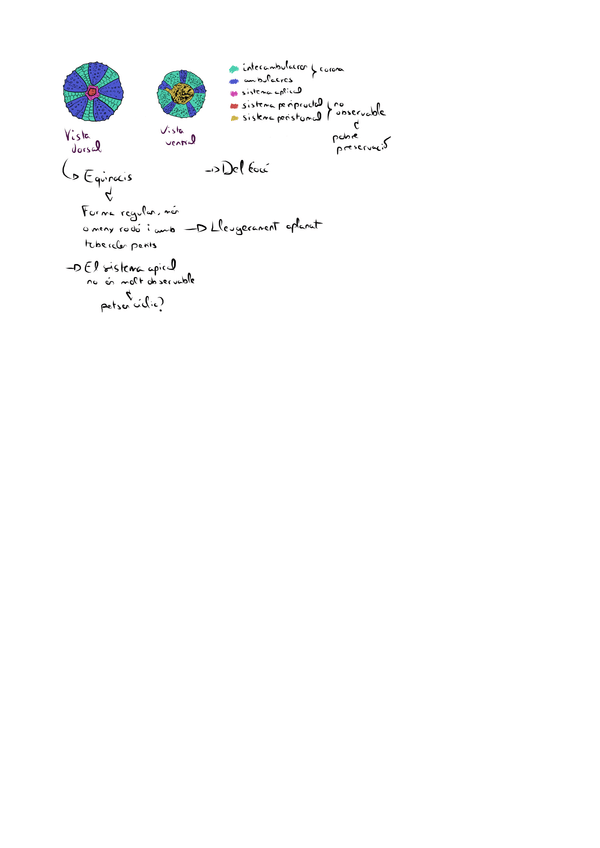 intecambulacres } corona
ambulacres
sistema apical
sistema periproctal } no
sistema peristomal observable
pobre
preservació
Vista
dorsal
Vista
ventral
Equinocis
Del Eocè
Forma regular, més
o meny rodó i amb
tubercles petits
Lleugerament aplanat
El sistema apical
no és molt observable
potser cíclic?